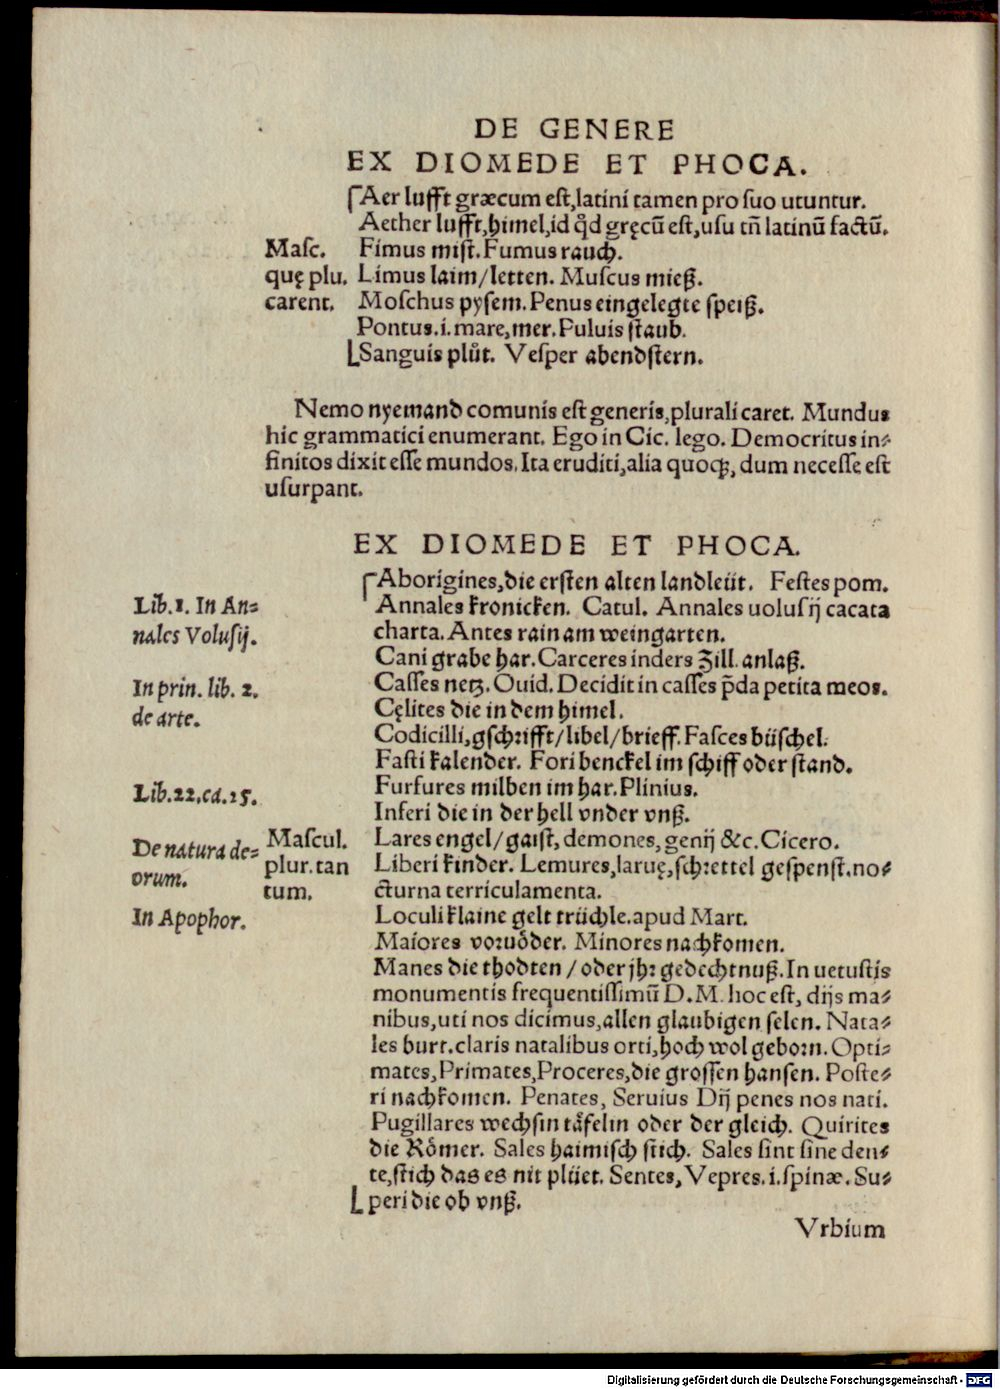 DE GENERE
EX DIOMEDE ET PHOCA.
Aer lufft græcum est, latini tamen pro suo utuntur.
Aether lufft, himel, id qd gręcū est, usu tñ latinū factū.
Masc. Fimus mist. Fumus rauch.
quę plu. Limus laim/letten. Muscus mieß.
carent. Moschus pysem. Penus eingelegte speiß.
Pontus .i. mare, mer. Puluis staub.
Sanguis plůt. Vesper abendstern.
Nemo nyemand comunis est generis, plurali caret. Mundus
hic grammatici enumerant. Ego in Cic. lego. Democritus in-
finitos dixit esse mundos. Ita eruditi, alia quoqꝫ, dum necesse est
usurpant.
EX DIOMEDE ET PHOCA.
Aborigines, die ersten alten landleüt. Festes pom.
Lib. 1. In An- Annales kronicken. Catul. Annales uolusij cacata
nales Volusij. charta. Antes rain am weingarten.
Cani grabe har. Carceres inders Zill. anlaß.
In prin. lib. 2. Casses netz. Ouid. Decidit in casses p̄da petita meos.
de arte. Cęlites die in dem himel.
Codicilli, gschrifft/libel/brieff. Fasces büschel.
Fasti kalender. Fori benckel im schiff oder stand.
Lib. 22. ca. 25. Furfures milben im har. Plinius.
Inferi die in der hell vnder vnß.
De natura de- Mascul. Lares engel/gaist, demones, genij &c. Cicero.
orum. plur. tan Liberi kinder. Lemures, laruę, schrettel gespenst. no-
tum. cturna terriculamenta.
In Apophor. Loculi klaine gelt trüchle. apud Mart.
Maiores voruöder. Minores nachkomen.
Manes die thodten / oder jhr gedechtnuß. In uetustis
monumentis frequentissimū D.M. hoc est, dijs ma-
nibus, uti nos dicimus, allen glaubigen selen. Nata-
les burt. claris natalibus orti, hoch wol geborn. Opti-
mates, Primates, Proceres, die grossen hansen. Poste-
ri nachkomen. Penates, Seruius Dij penes nos nati.
Pugillares wechsin täfelin oder der gleich. Quirites
die Römer. Sales haimisch stich. Sales sint sine den-
te, stich das es nit plüet. Sentes, Vepres .i. spinæ. Su-
peri die ob vnß.
Vrbium
Digitalisierung gefördert durch die Deutsche Forschungsgemeinschaft - DFG